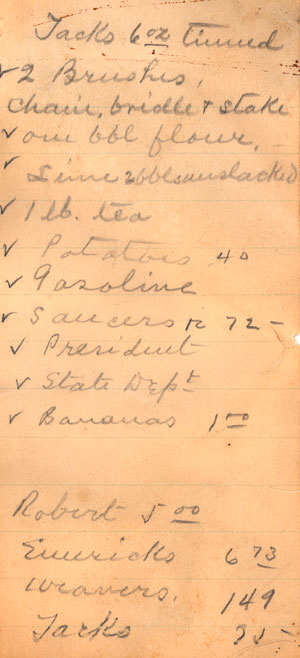 Tacks 6 oz tinned
✓ 2 Brushes,
Chain, bridle + stake
✓ one bbl flour, -
✓ Lime 2 bbls unslacked
✓ 1 lb. tea
✓ Potatois 40
✓ Gasoline
✓ Saucers 72 -
✓ President
✓ State Dept
✓ Bananas 1 00
Robert 5 00
Emericks 6 73
Weavers. 149
Tacks